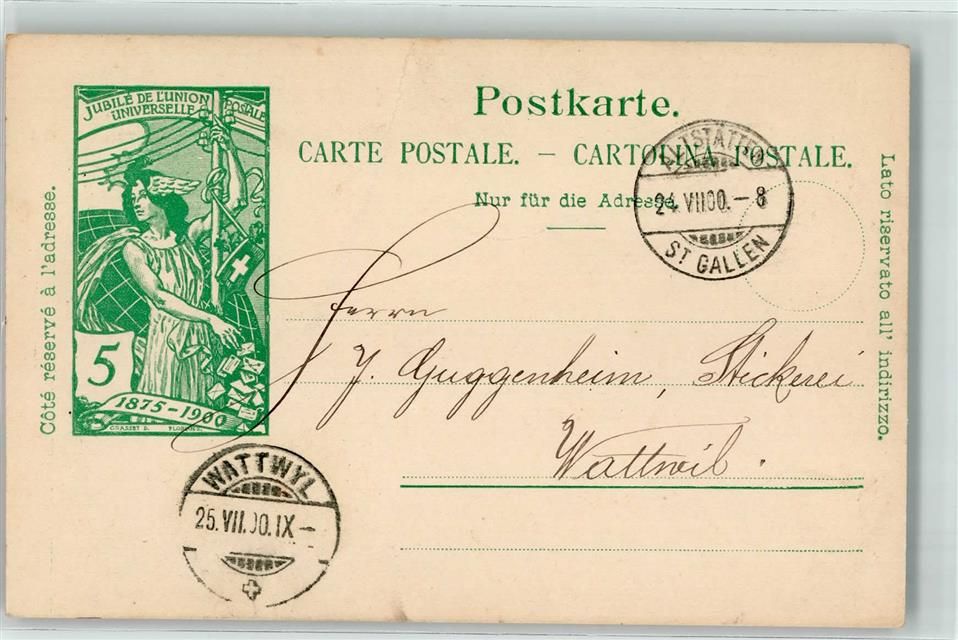 JUBILÉ DE L'UNION
POSTALE
UNIVERSELLE
5
1875-1900
GRASSET D.
Côté réservé à l'adresse.
Postkarte.
CARTE POSTALE. — CARTOLINA POSTALE.
Nur für die Adresse.
Lato riservato all' indirizzo.
ALTSTÄTTEN
24. VII 00. - 8
ST GALLEN
Herrn
J. Guggenheim, Stickerei
Wattwil.
WATTWYL
25. VII. 00. IX -